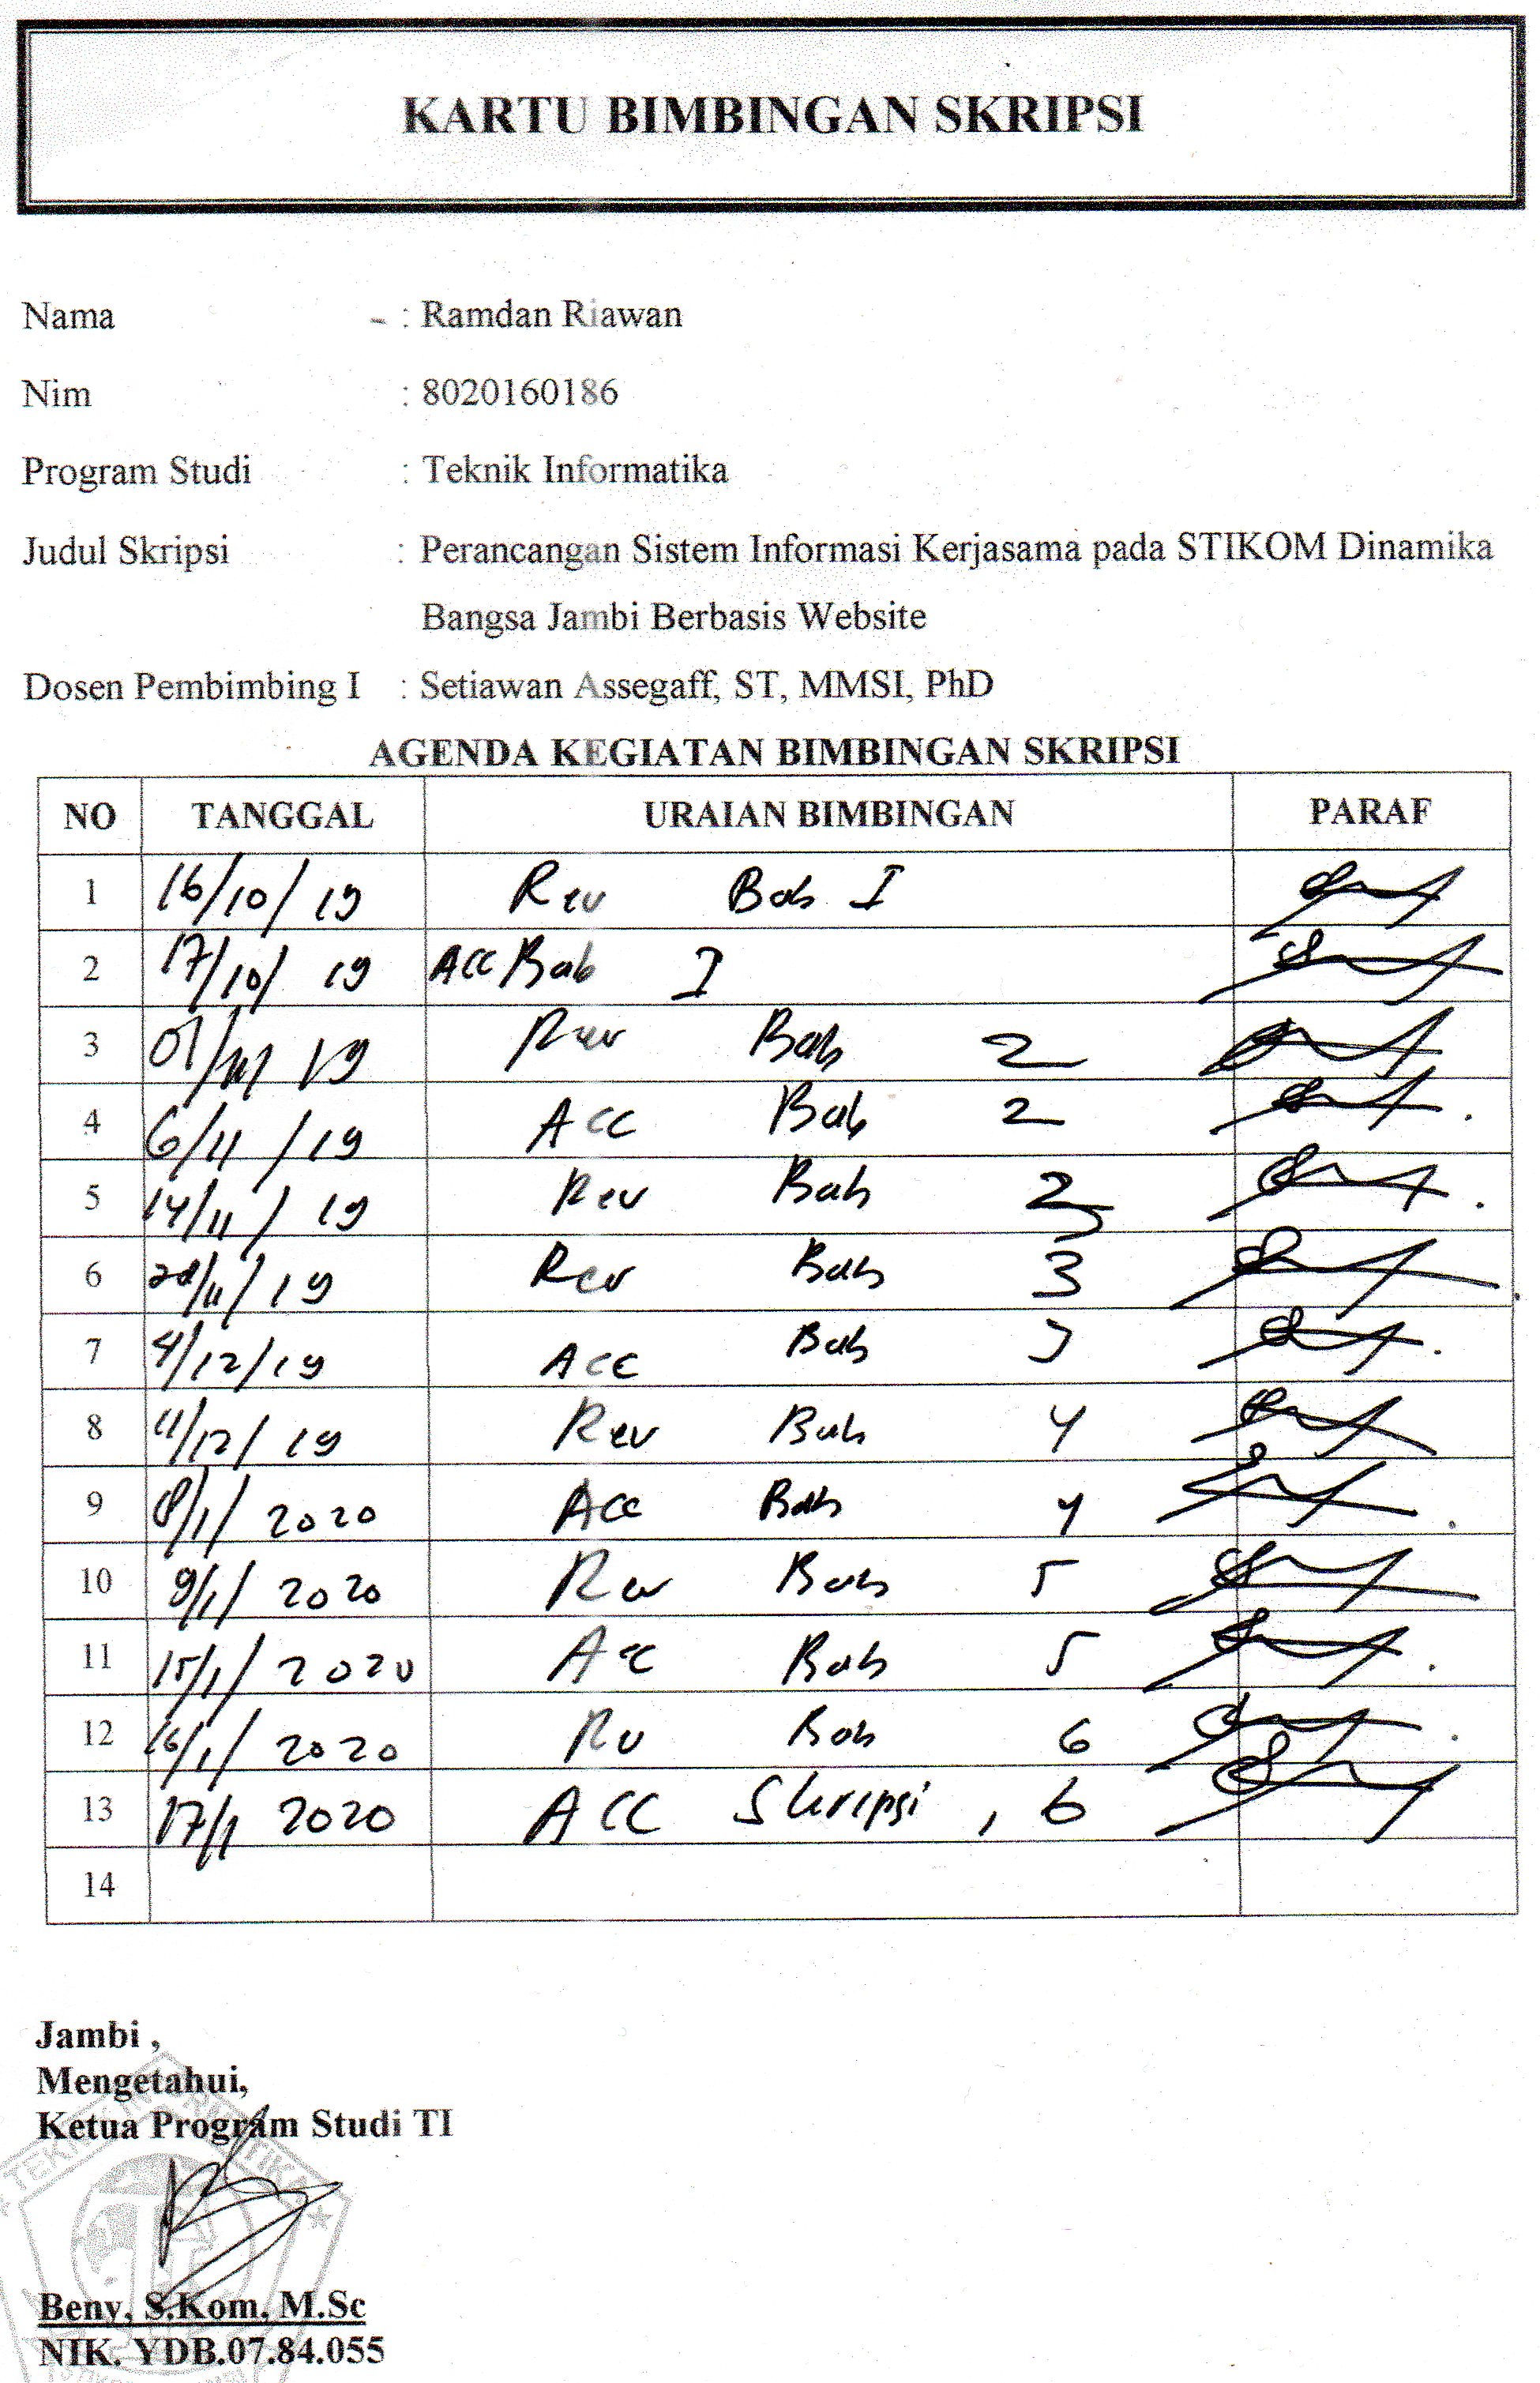 KARTU BIMBINGAN SKRIPSI
Nama : Ramdan Riawan
Nim : 8020160186
Program Studi : Teknik Informatika
Judul Skripsi : Perancangan Sistem Informasi Kerjasama pada STIKOM Dinamika
Bangsa Jambi Berbasis Website
Dosen Pembimbing I : Setiawan Assegaff, ST, MMSI, PhD
AGENDA KEGIATAN BIMBINGAN SKRIPSI
NO TANGGAL URAIAN BIMBINGAN PARAF
1 16/10/19 Rev Bab I
2 17/10/19 ACC Bab I
3 Rev Bab 2
4 6/11/19 Acc Bab 2
5 14/11/19 Rev Bab
6 Rev Bab 3
7 4/12/19 Acc Bab 3
8 11/12/19 Rev Bab 4
9 8/1/2020 Acc Bab 4
10 9/1/2020 Rev Bab 5
11 15/1/2020 Acc Bab 5
12 16/1/2020 Rev Bab 6
13 17/1 2020 ACC Skripsi, 6
14
Jambi ,
Mengetahui,
Ketua Program Studi TI
TEKNIK INFORMATIKA
Beny, S.Kom, M.Sc
NIK. YDB.07.84.055